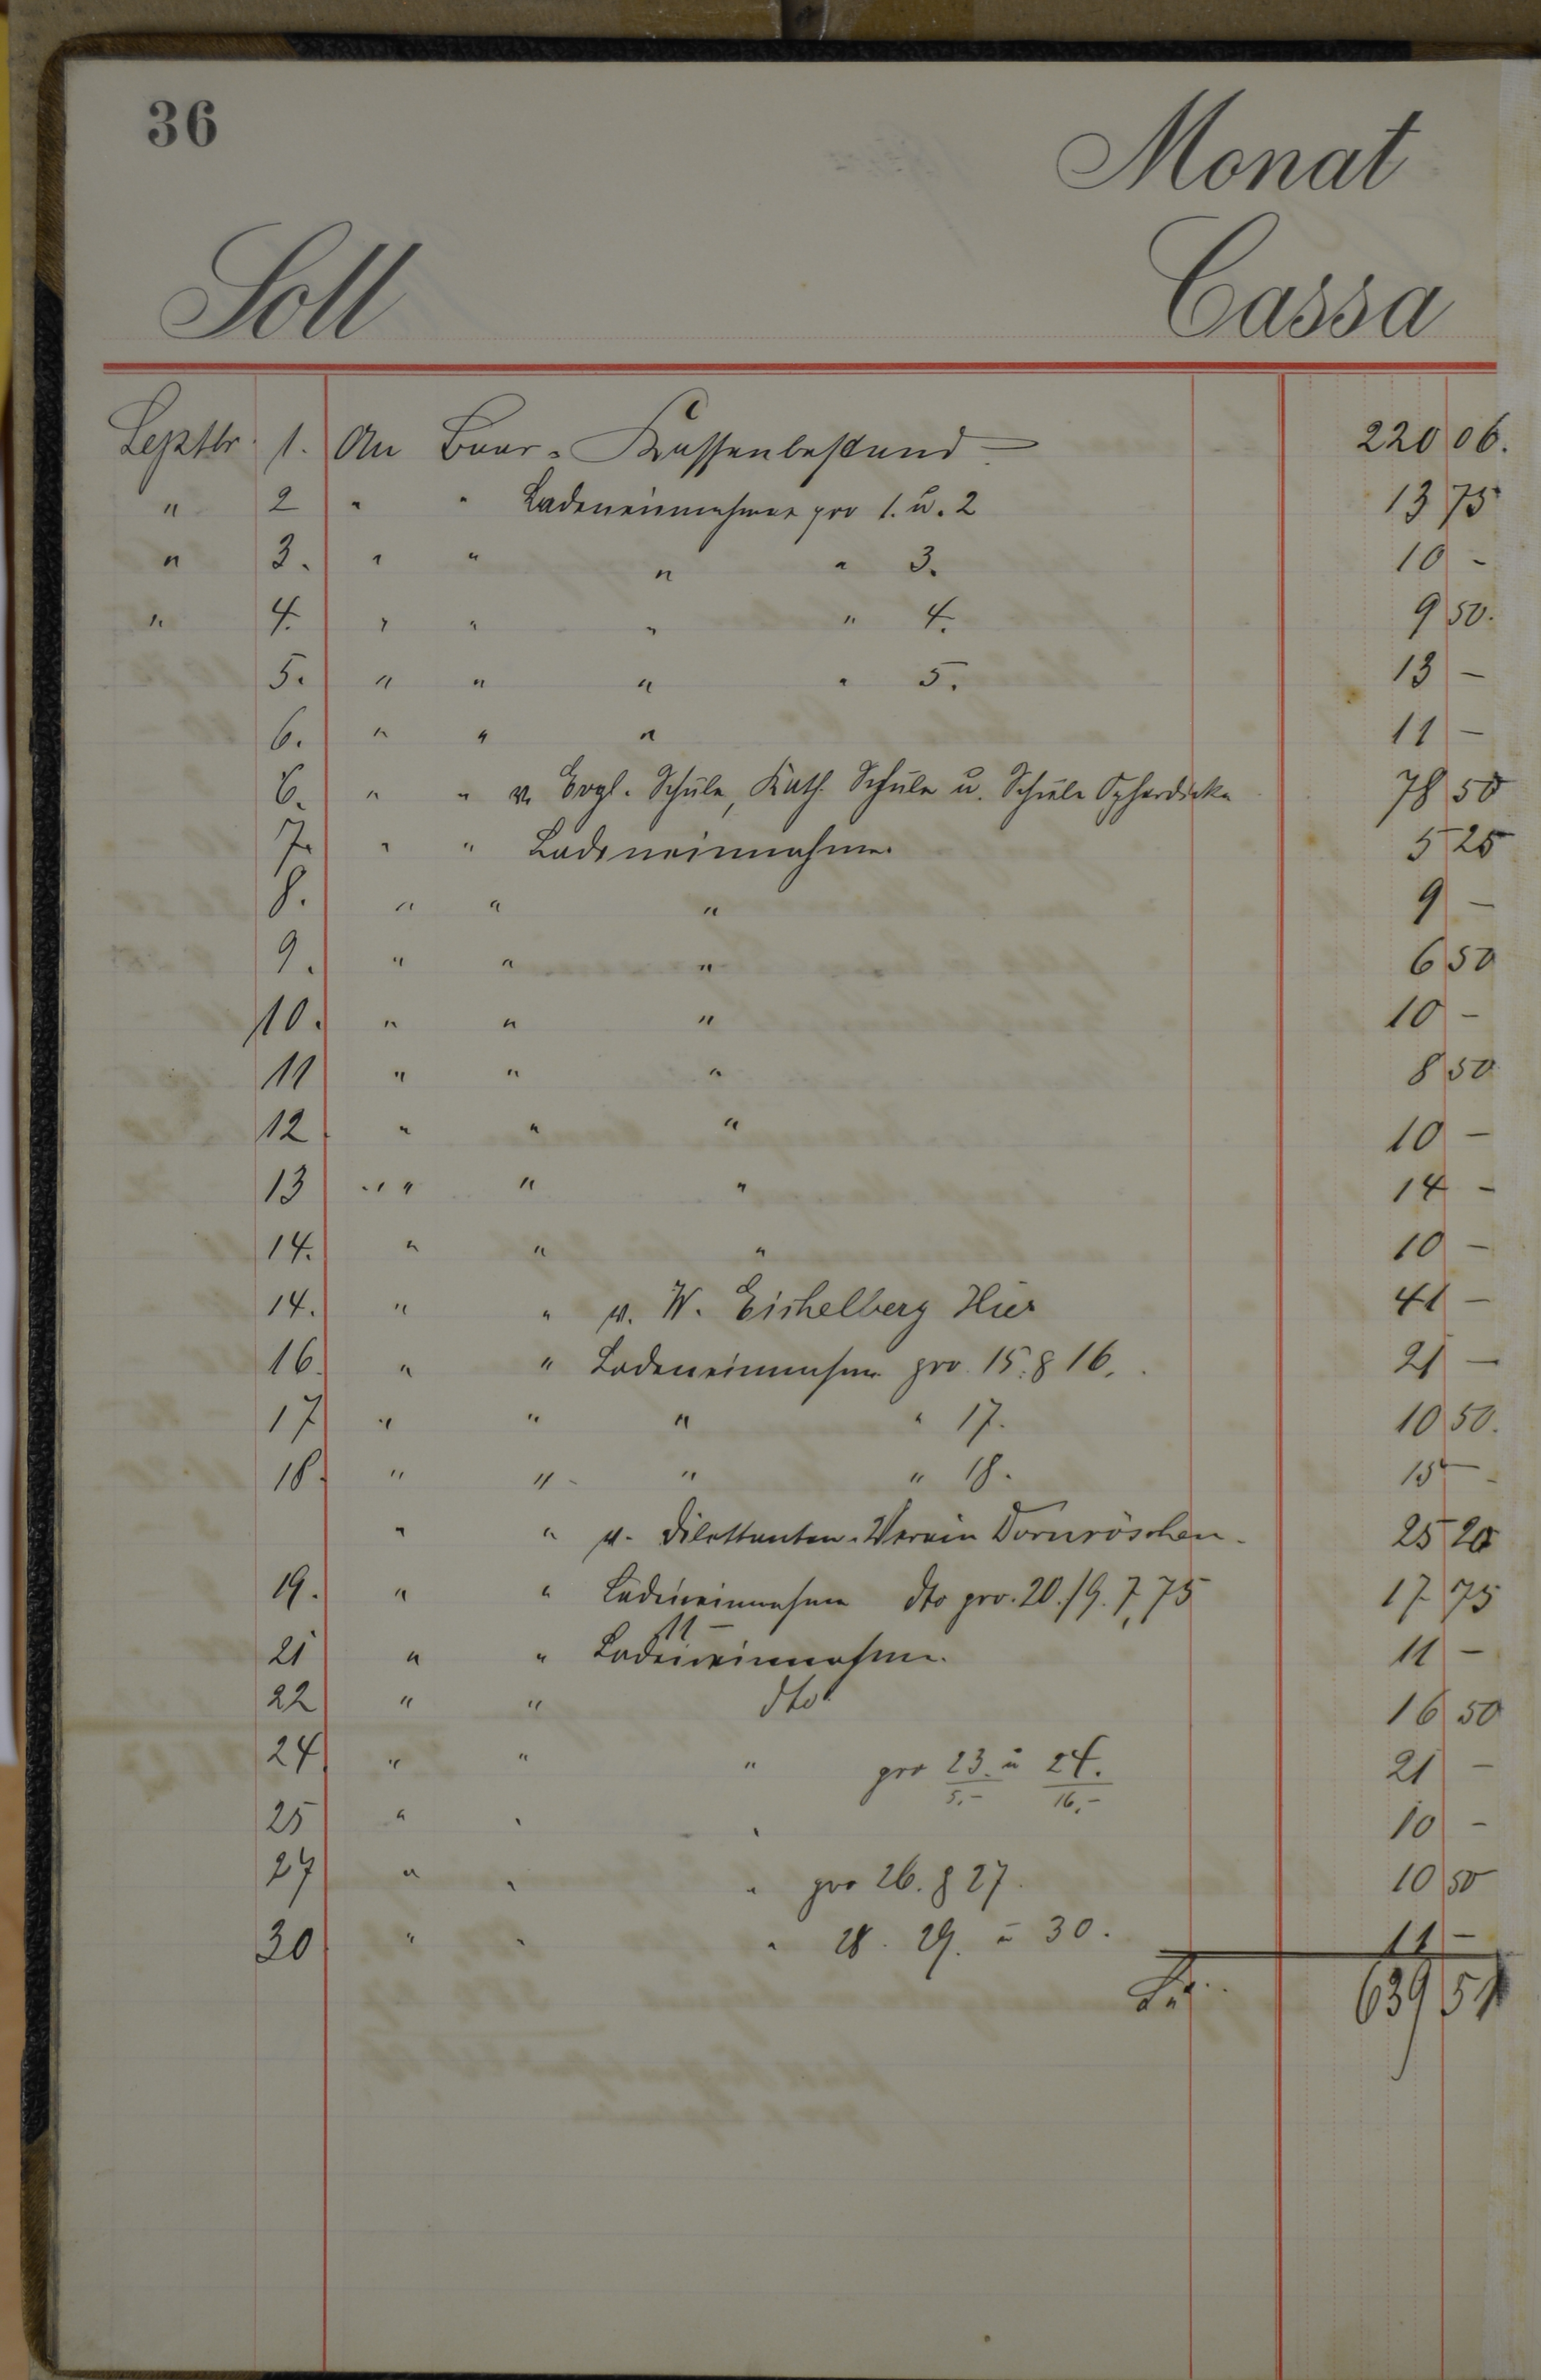 36
Monat
Soll Cassa
Septbr. 1. An Baar-Kassenbestand 220 06.
" 2 " " Ladeneinnahme pro 1. u. 2 13 75
" 3. " " " " 3. 10 -
" 4. " " " " 4. 9 50.
5. " " " " 5. 13 -
6. " " " 11 -
6. " " v. Evgl. Schule, Kath. Schule u. Schule Opherdicke 78 50
7. " " Ladeneinnahme. 5 25
8. " " " 9 -
9. " " " 6 50
10. " " " 10 -
11 " " " 8 50
12 " " " 10 -
13 " " " 14 -
14. " " " 10 -
14. " " v. W. Eichelberg Hier 41 -
16. " " Ladeneinnahme pro 15. & 16. 21 -
17 " " " " 17. 10 50.
18. " " " " 18. 15 -
" " v. Dilettanten-Verein Dornröschen. 25 20
19. " " Ladeneinnahme dto pro. 20./9. 7,75 17 75
11 -
21 " " Ladeneinnahme. 11 -
22 " " dto 16 50
24 " " " pro 23. u 24. 21 -
5.- 16,-
25 " " " 10 -
27 " " " pro 26. & 27. 10 50
30 " " " 28. 29. u 30. 11 -
639 51